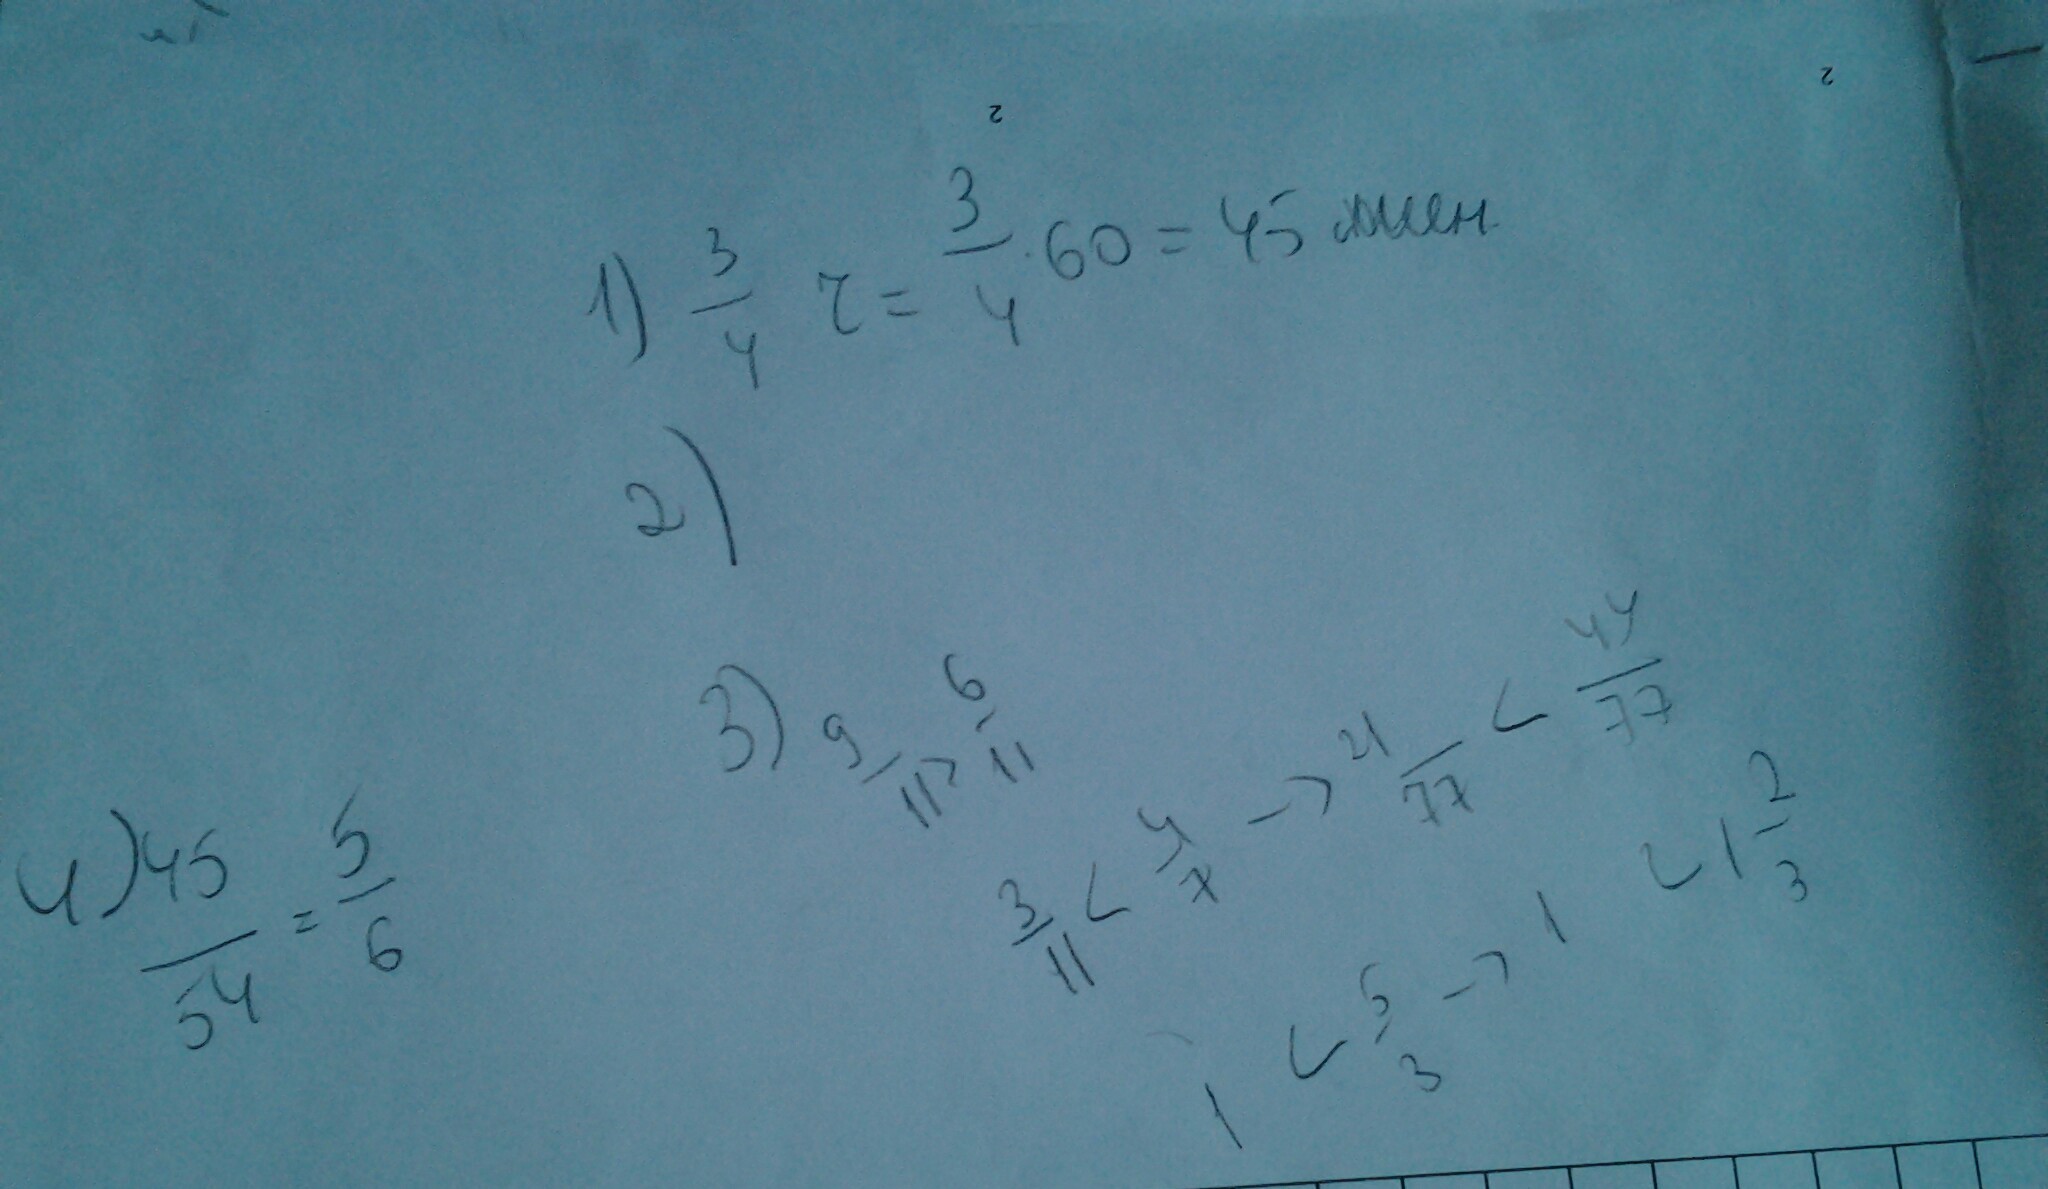 1) 3/4 ч = 3/4 · 60 = 45 мин.
2)
3) 9/11 > 6/11
3/11 < 4/7 -> 21/77 < 44/77
1 < 5/3 -> 1 < 1 2/3
4) 45/54 = 5/6